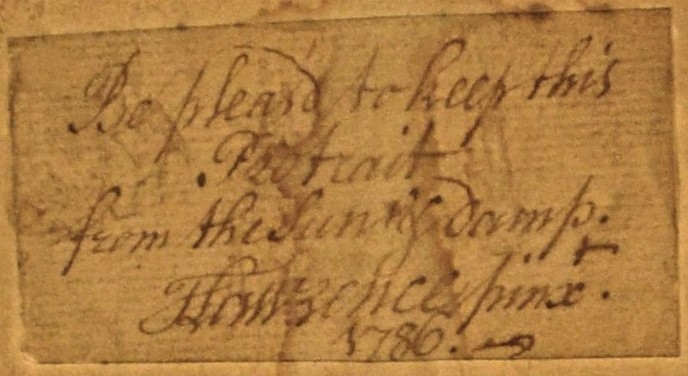 Be pleas'd to keep this
Portrait
from the Sun & Damp.
TLawrence pinxt.
1786.